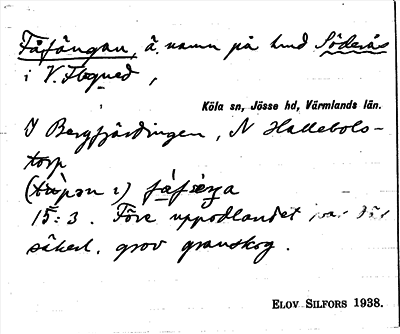 Fåfängan, ä. namn på hmd Söderås
i V. Flogned,
Köla sn, Jösse hd, Värmlands län.
I Bergfjärdingen, N Hallebols-
torp
15:3. Före uppodlandet var
säkerl. grov granskog.
ELOV SILFORS 1938.